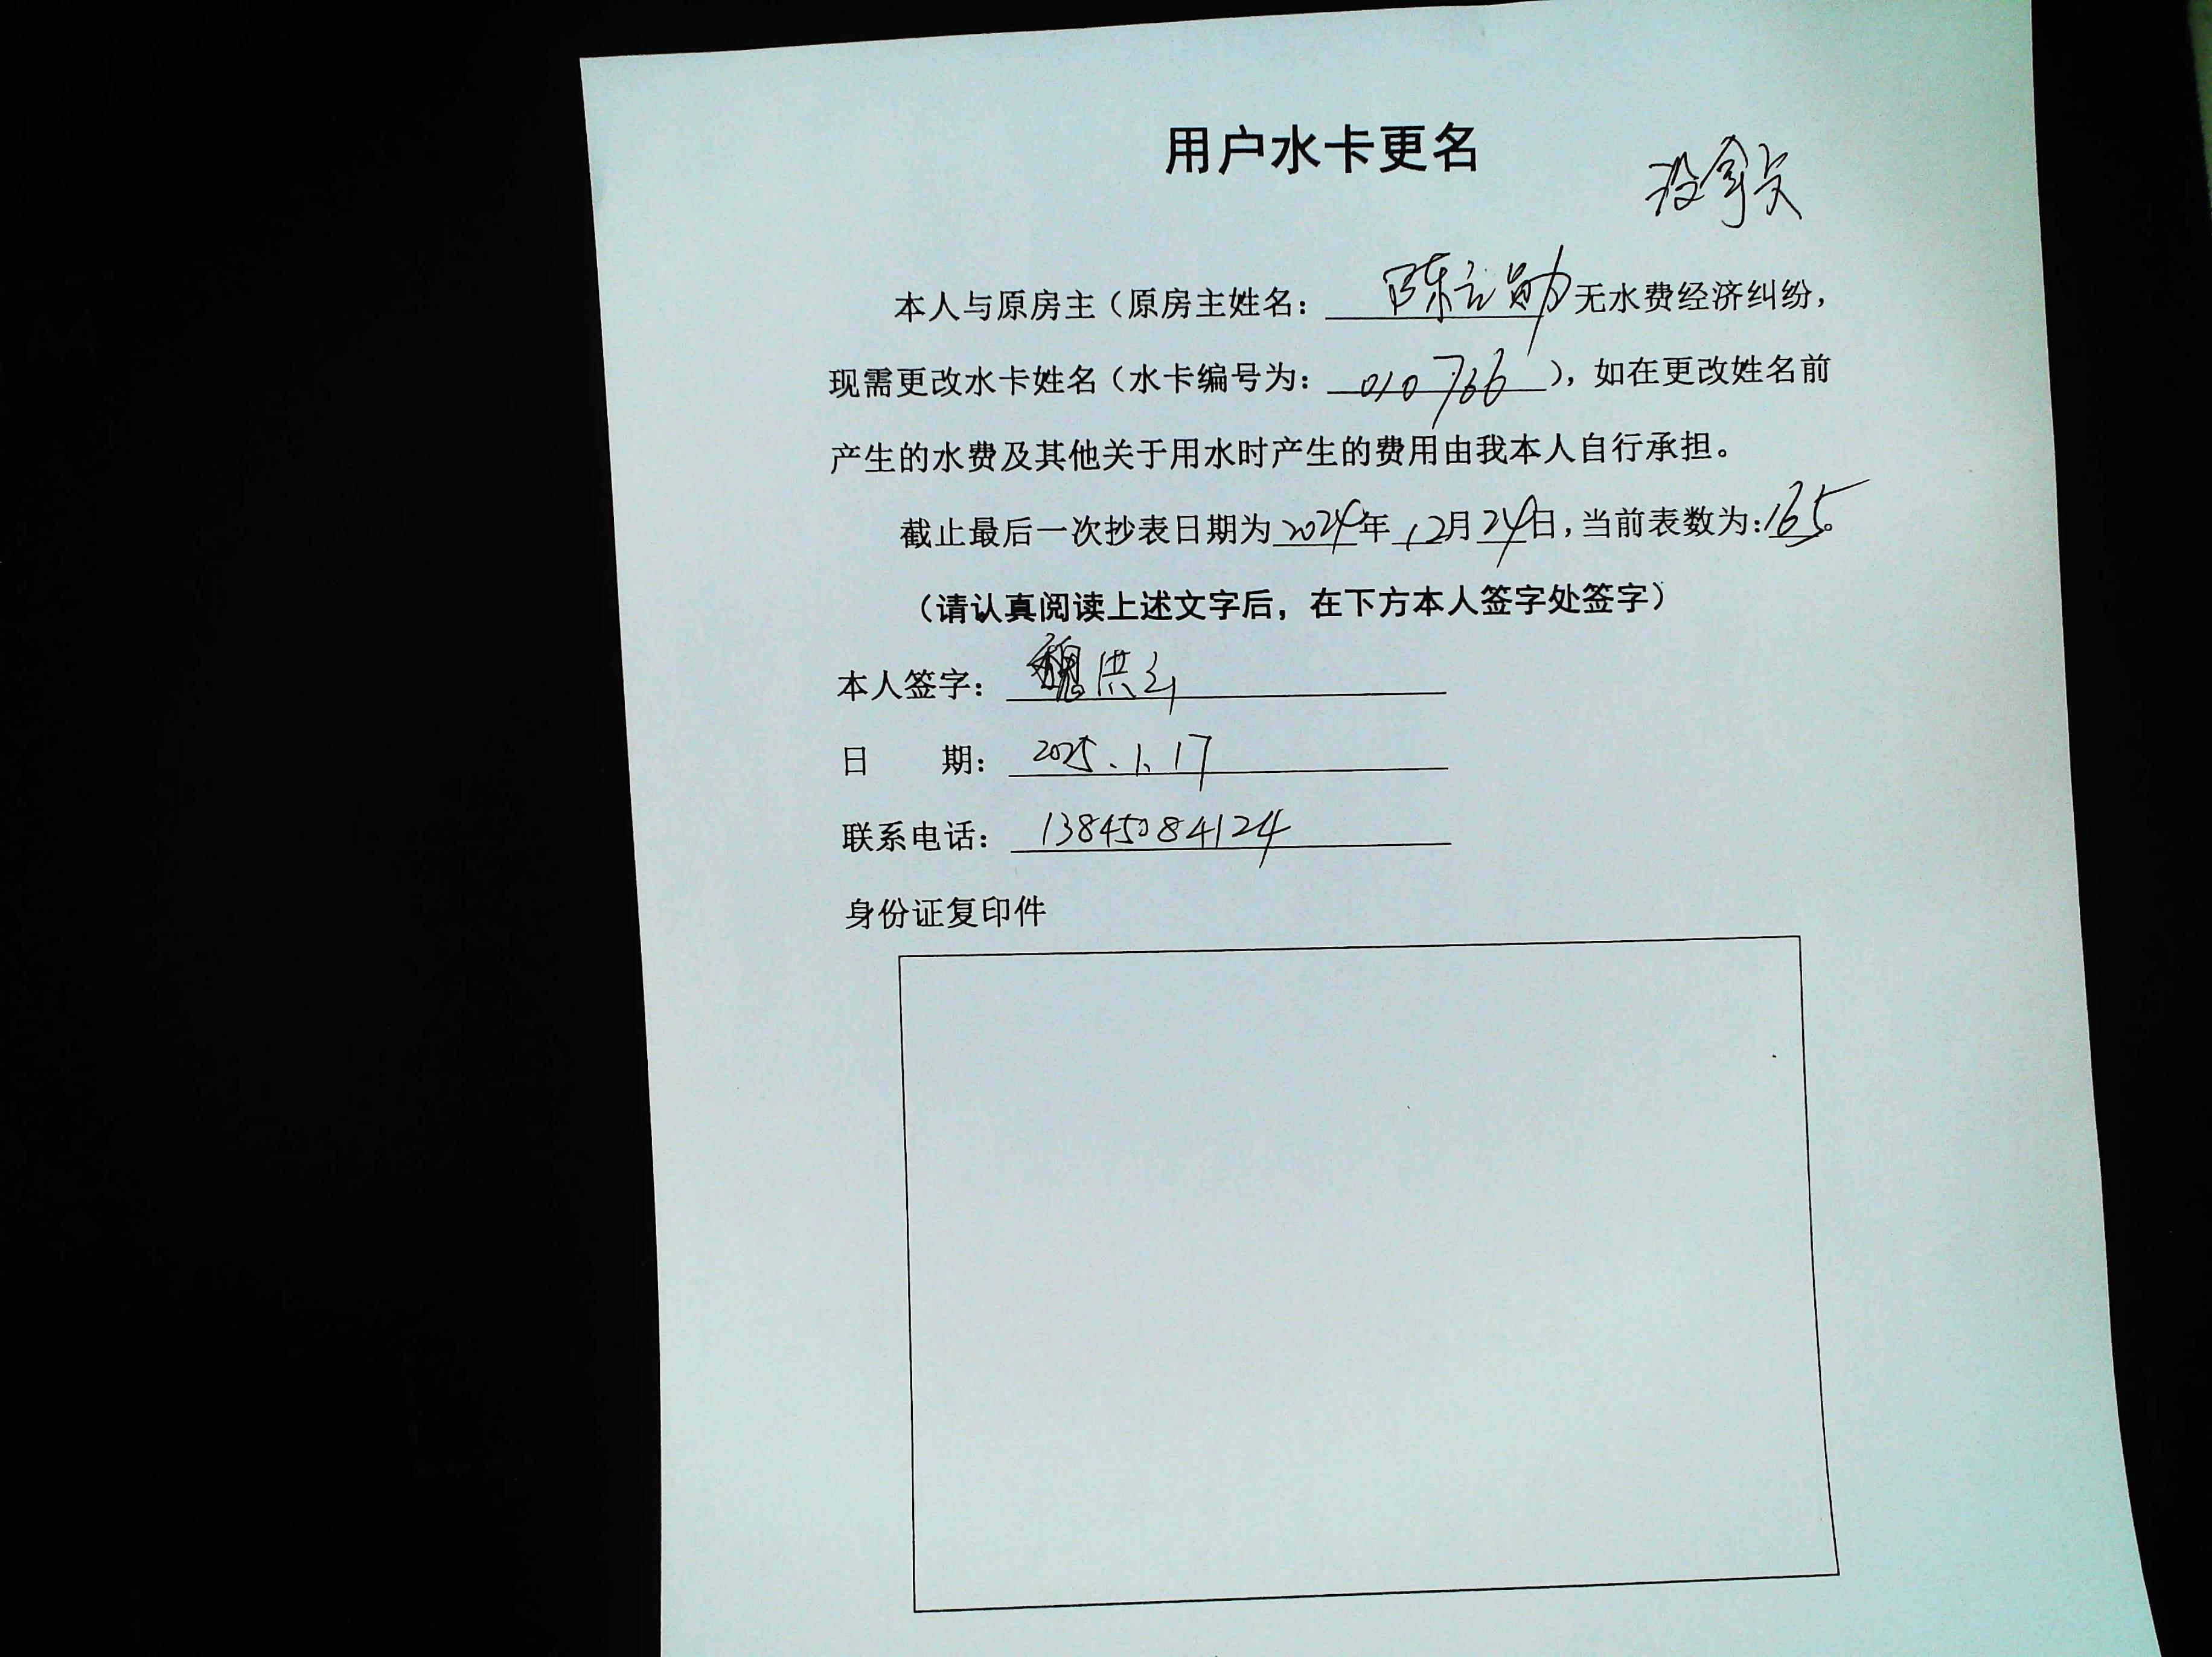 用户水卡更名
没拿卡
本人与原房主（原房主姓名：陈立勋无水费经济纠纷，
现需更改水卡姓名（水卡编号为：010766），如在更改姓名前
产生的水费及其他关于用水时产生的费用由我本人自行承担。
截止最后一次抄表日期为2024年12月24日，当前表数为：165。
（请认真阅读上述文字后，在下方本人签字处签字）
本人签字：魏洪
日 期：2025.1.17
联系电话：13845084124
身份证复印件